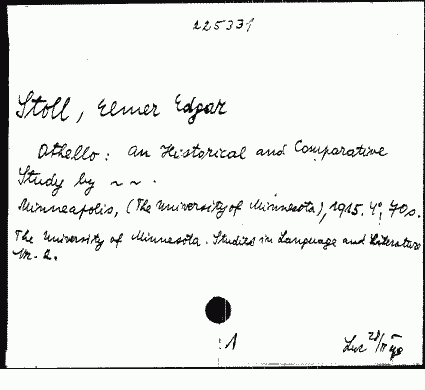 225331
Stoll, Elmer Edgar
Othello: An Historical and Comparative
Study by ~ ~.
Minneapolis, (The University of Minnesota), 1915. 4°, 70 s.
The University of Minnesota. Studies in Language and Literature
1